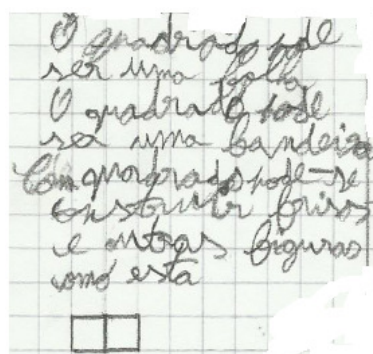 O quadrado pode
ser uma
O quadrado pode
ser uma bandeira
Com quadrados pode-se
construir frisos
e outras figuras
como esta